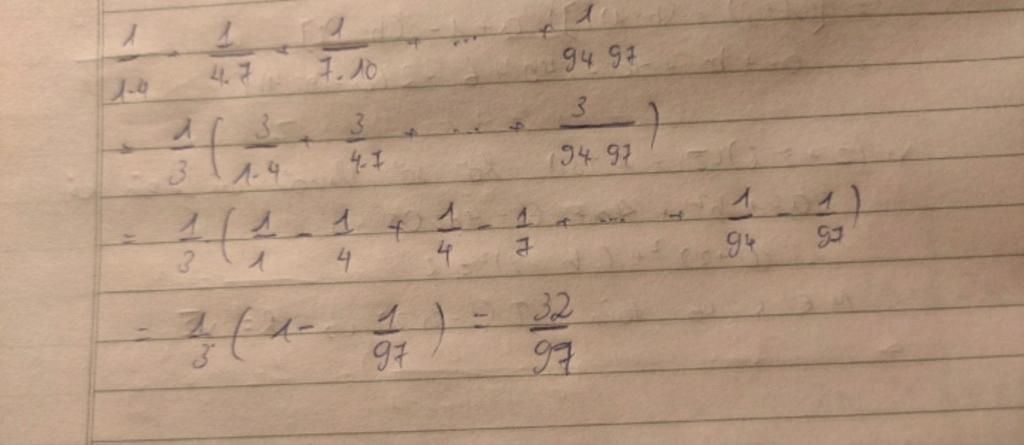 1/1.4 + 1/4.7 + 1/7.10 + ... + 1/94.97
= 1/3 ( 3/1.4 + 3/4.7 + ... + 3/94.97 )
= 1/3 . ( 1/1 - 1/4 + 1/4 - 1/7 + ... + 1/94 - 1/97 )
= 1/3 ( 1 - 1/97 ) = 32/97